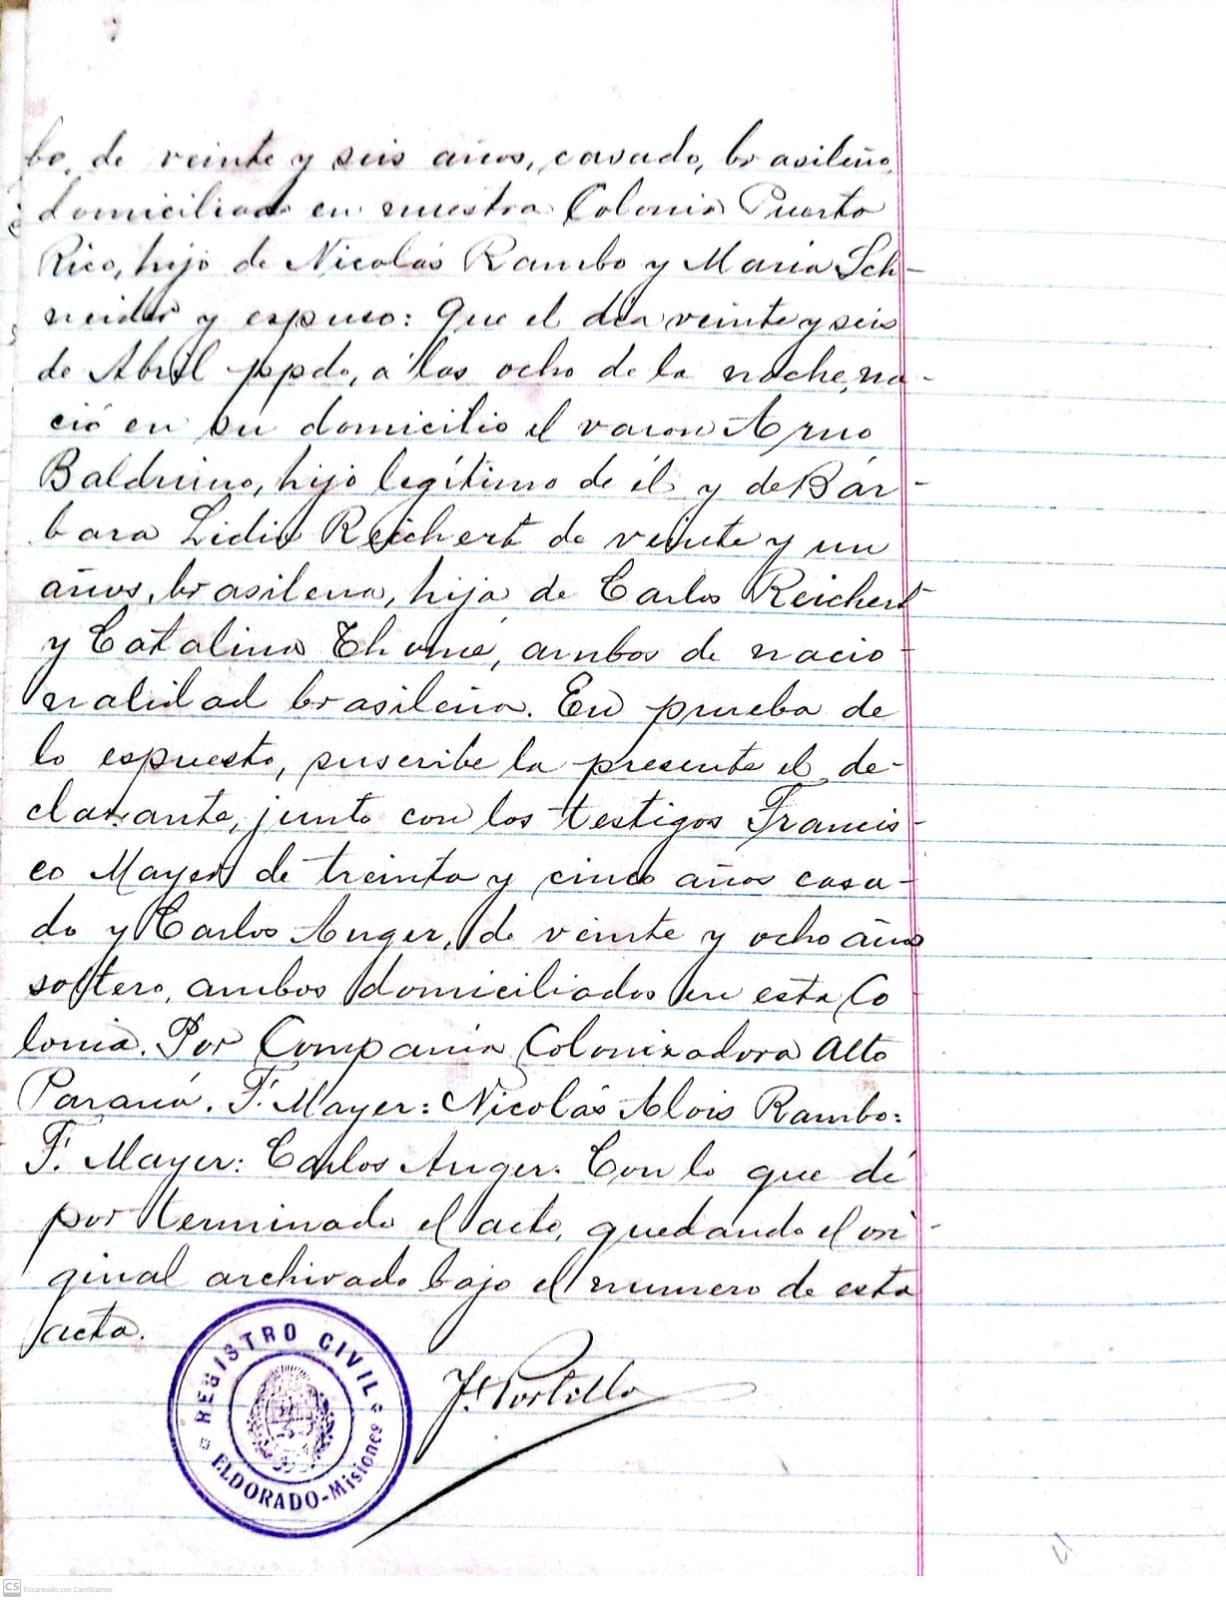 bo, de veinte y seis años, casado, brasileño,
domiciliado en nuestra Colonia Puerto
Rico, hijo de Nicolás Rambo y Maria Sch-
neider y espuso: Que el dia veinte y seis
de Abril ppdo, a las ocho de la noche, na-
ció en su domicilio el varon Arno
Balduino, hijo legítimo de él y de Bár-
bara Lidia Reichert de veinte y un
años, brasilena, hija de Carlos Reichert
y Catalina Thomé, ambos de nacio-
nalidad brasileña. En prueba de
lo espuesto, suscribe la presente el de-
clarante, junto con los testigos Francis-
co Mayer de treinta y cinco años casa-
do y Carlos Auger, de veinte y ocho años
soltero, ambos domiciliados en esta Co
lonia. Por Compania Colonizadora Alto
Paraná. F. Mayer: Nicolás Alois Rambo:
F. Mayer: Carlos Auger. Con lo que dí
por terminado el acto, quedando el ori-
ginal archivado bajo el numero de esta
acta.
REGISTRO CIVIL
ELDORADO-Misiones
J. Portillo
CS Escaneado con CamScanner